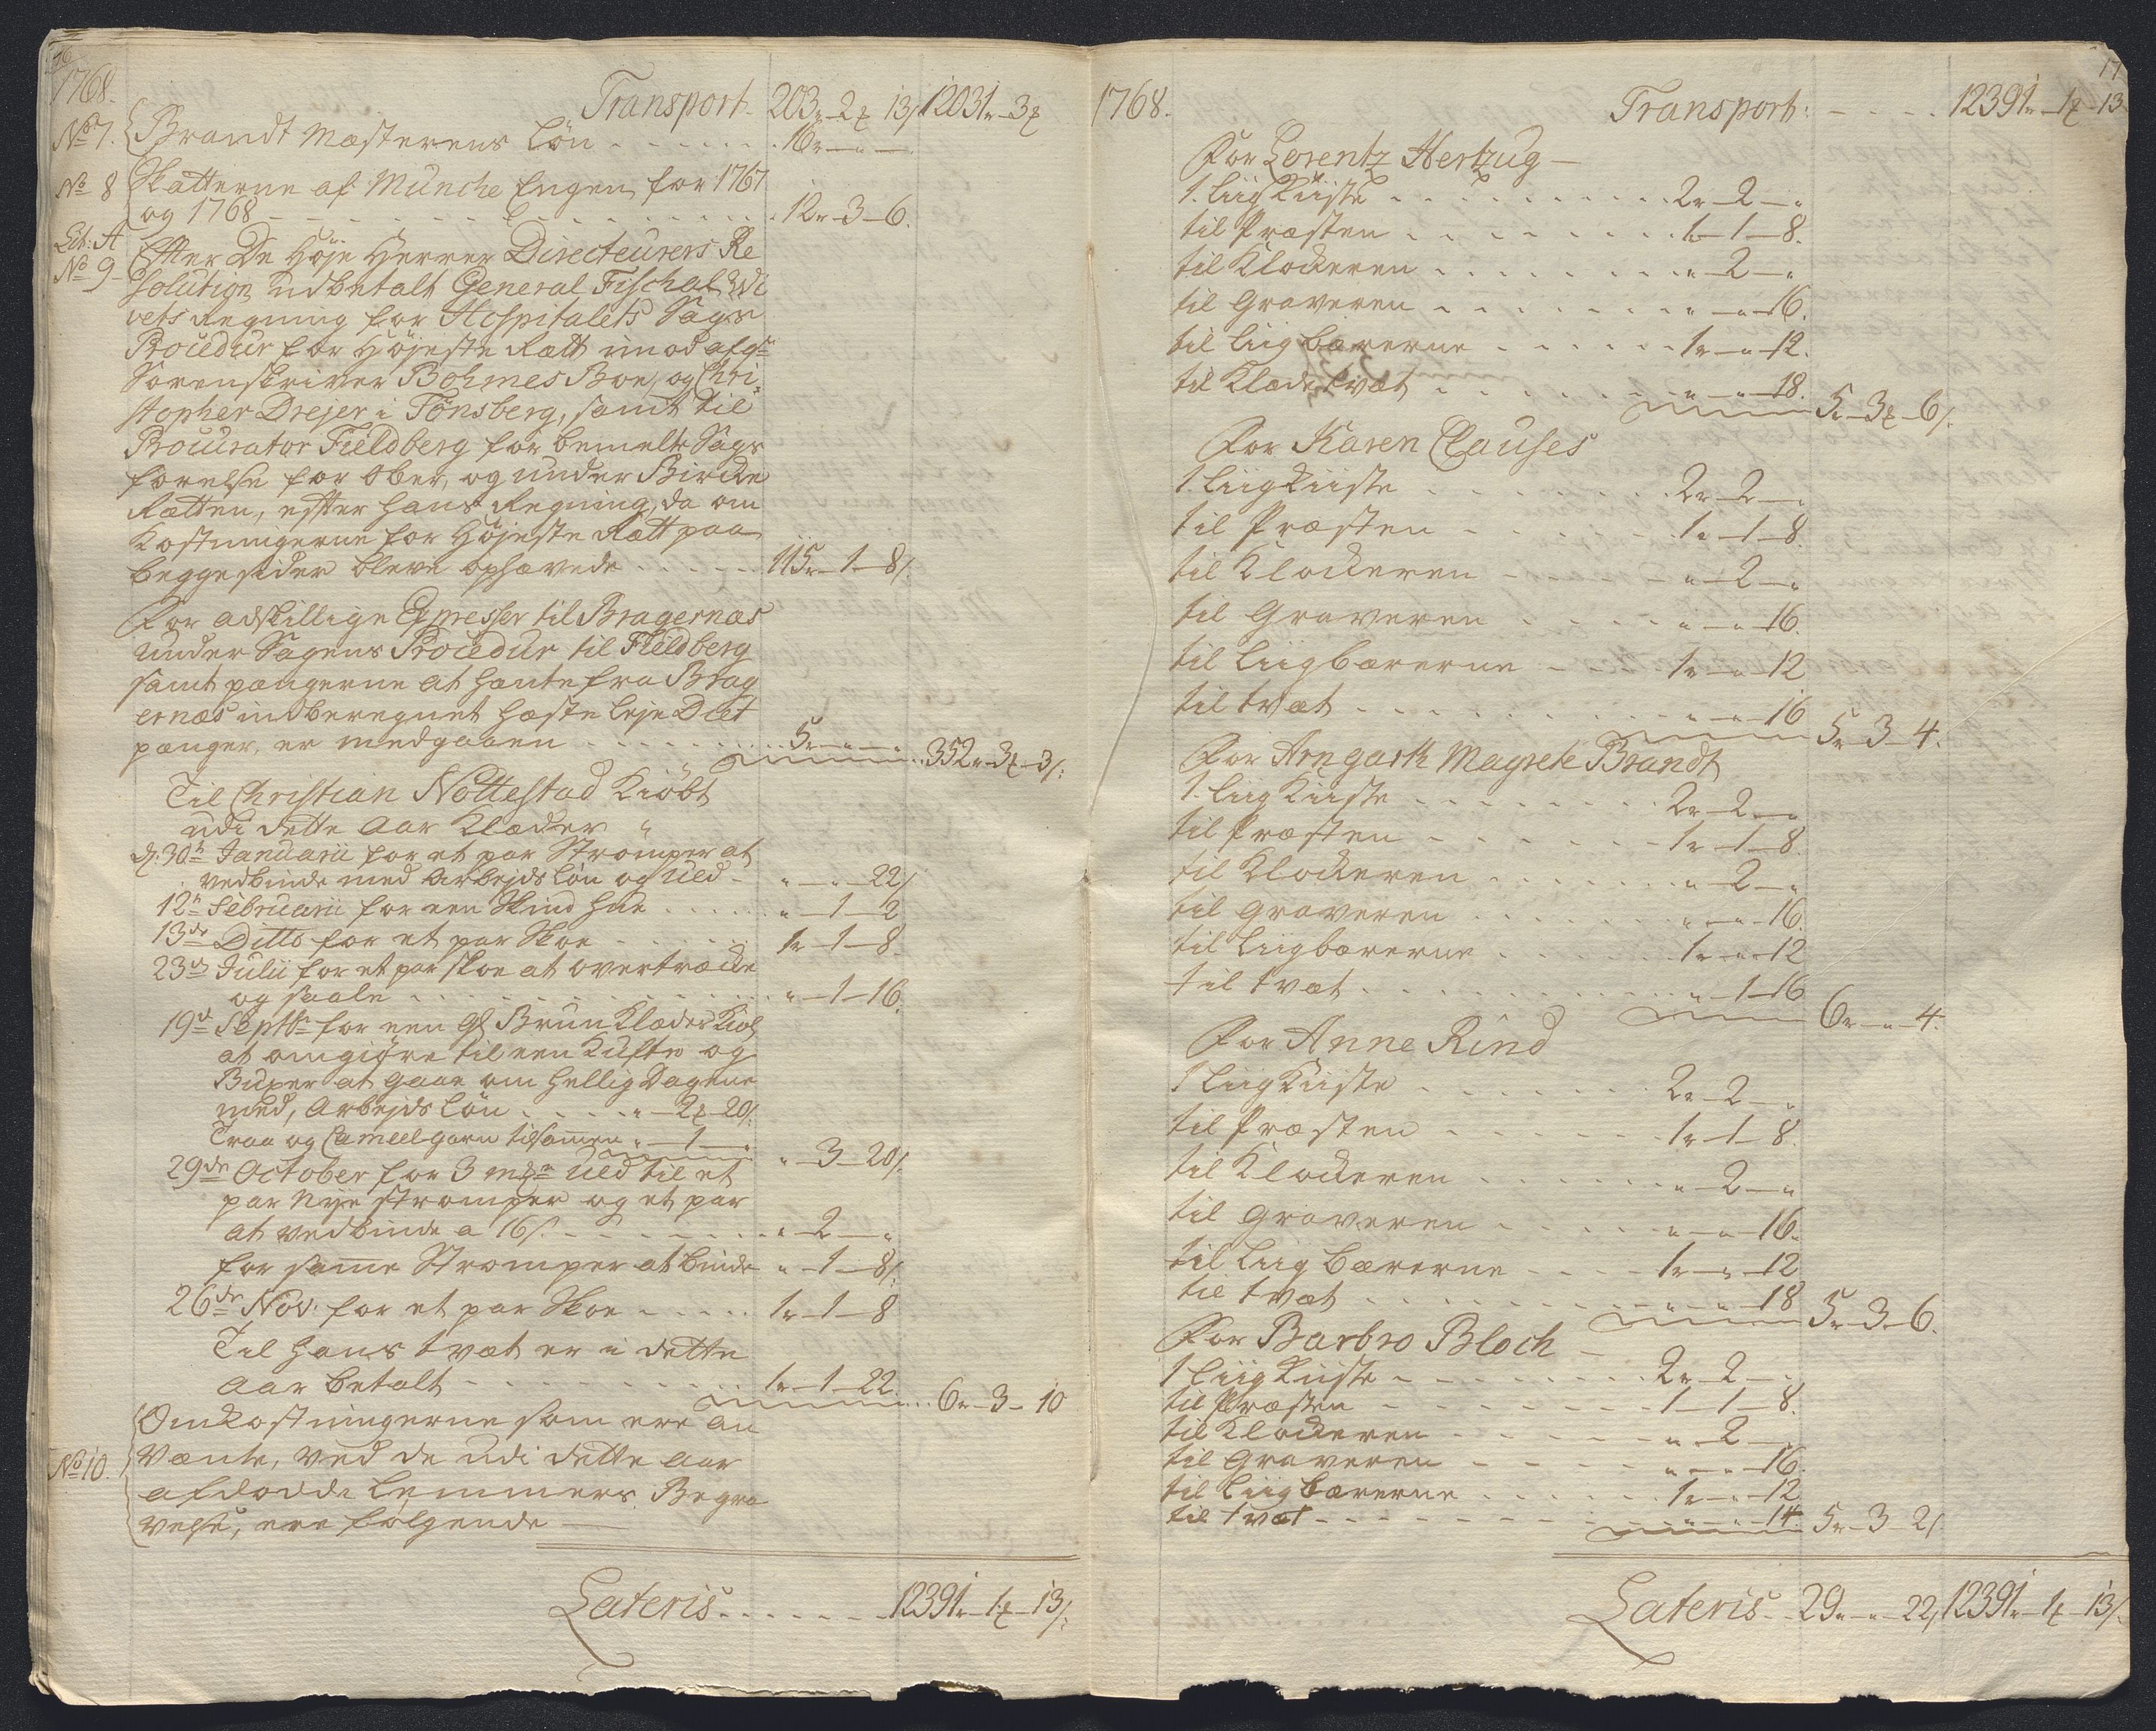 16
1768.
Transport. 203r-2ꝝ 13/ 12031r-3ꝝ
No 7. Brandt Mæsterens Løn . . . . . . 16r-"-"
No 8 Skatterne af Munche Engen for 1767
og 1768 - - - - - - - - - 12r-3-6.
Lit: A
No 9 Efter De Høje Herrer Directeurers Re
solution udbetalt General Fischal
vets Regning for Hospitalets Sags
Procedur for Højeste Rætt imod afgl:
Sorenskriver Bøhmes Boe, og Chri-
stopher Drejer i Tønsberg, samt til
Procurator Fieldberg for bemelte Sags
førelse for Ober, og under Bircke
Rætten, efter hans Regning, da om
kostningerne for Højeste Rætt paa
begge sider bleve ophævede . . . . . 115r-1-8/.
For adskillige Expresser til Bragernæs
under Sagens Procedur til Fieldberg
samt pængerne at hænte fra Brag
ernæs indberegnet hæste leje Diæt
pænger, er medgaaen . . . . . . . 5r-"-" . . 352r-3ꝝ-3/:
Til Christian Nøttestad Kiøbt
udi dette Aar Klæder "
d: 30te Januarii for et par Strømper at
vedbinde med Arbejdsløn og Uld - "-"-22/
12te Februarii for een Skind hue . . . . . "-1-2
13de Ditto for et par Skoe . . . . . . 1r-1-8
23de Julii for et par skoe at overtræcke
og saale . . . . . . . . . . . "-1-16.
19de Septbr for een gl Brun Klædes Kiol
at omgiøre til een Kufte og
Buxer at gaae om hellig Dagene
med, Arbejdsløn . . . . . "-2ꝝ-20/.
Traa og Cameelgarn tilsamen "-1-" "-3-20/.
29de October for 3 mkr Uld til et
par Nye strømper og et par
at vedbinde a 16/. - - - - - - - "-2-"
for same Strømper at binde - "-1-8/:
26de Nov: for et par Skoe . . . . . 1r-1-8
Til hans tvæt er i dette
Aar betalt - - - - - - - - 1r-1-22. . . . 6r-3-10
Omkostningerne som ere an
No 10. vænte, ved de udi dette Aar
afdøde Lemmers Begra
velse, ere følgende —
Lateris . . . . . . . 12391r-1ꝝ-13/:
17
1768. Transport: - . . . 12391r-1ꝝ-13
For Lorentz Hertzug —
1. Liigkiiste . . . . . . . . . . 2r-2-"
til Præsten . . . . . . . . . 1r-1-8.
til Klockeren . . . . . . . . "-2-"
til Graveren . . . . . . . . "-"-16.
til Liigbærerne . . . . . . 1r-"-12.
til Klæde tvæt . . . . . . "-"-18. 5r-3ꝝ-6/.
For Karen Clauses
1. Liigkiiste . . . . . . . . 2r-2-"
til Præsten - . . . . . . 1r-1-8
til Klockeren - . . . . - "-2-"
til Graveren . . . . . "-"-16.
til Liigbærerne - . . . . 1r-"-12
til tvæt . . . . . . . . . "-"-16 5r-3-4.
For Arngarth Magrete Brandt
1. Liigkiiste . . . . . . . . 2r-2-"
til Præsten - . . . . . . 1r-1-8.
til Klockeren . . . . . . . "-2-"
til Graveren . . . . . . . "-"-16.
til Liigbærerne . . . . . . 1r-"-12
til tvæt . . . . . . . . . "-1-16 6r-"-4.
For Anne Rind
1 Liigkiiste . . . . . . . 2r-2-"
til Præsten . . . . . . . 1r-1-8.
til Klockeren . . . . . . "-2-"
til Graveren . . . . . "-"-16.
til Liigbærerne - . . . 1r-"-12
til tvæt . . . . . . . . "-"-18 5r-3-6.
For Barbro Bloch —
1 Liigkiiste - . . . . . . . 2r-2-.
til Præsten - . . . . . . . 1-1-8.
til Klockeren - . . . . - "-2-
til Graveren - - . . . "-"-16.
til Liigbærerne . . . . . 1r-"-12
til tvæt - - - - - - - "-"-14. 5r-3-2/
Lateris - - 29r-"-22/ 12391r-1ꝝ-13/: